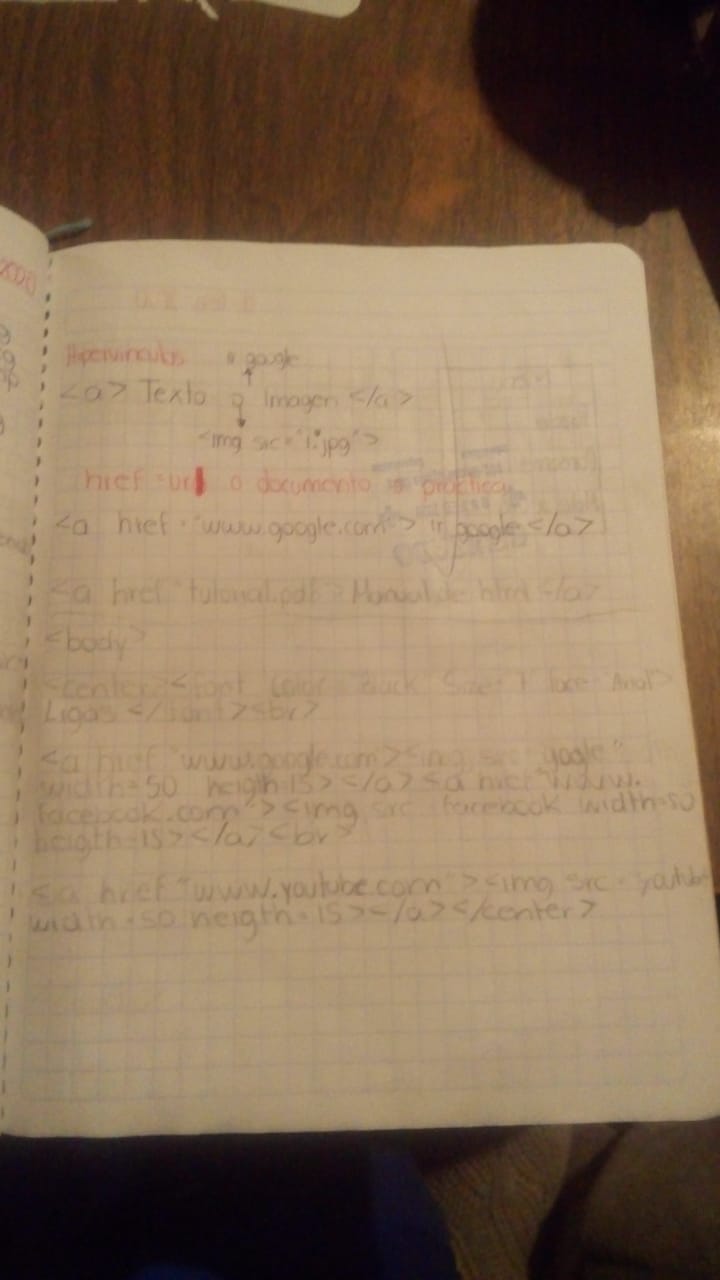 2020
Hipervinculos google
<a> Texto o Imagen </a>
<img src="1.jpg">
href = url o documento practica
<a href="www.google.com"> ir google </a>
<a href "tutorial.pdf> Manual de html </a>
<body>
<center> <font color black size= 7 face Arial>
Ligas </font><br>
<a href "www.google.com><img src google"
width=50 heigth=15></a><a href "www.
facebook.com"><img src facebook width=50
heigth=15></a><br>
<a href "www.youtube.com"><img src= youtube
width=50 heigth=15></a></center>